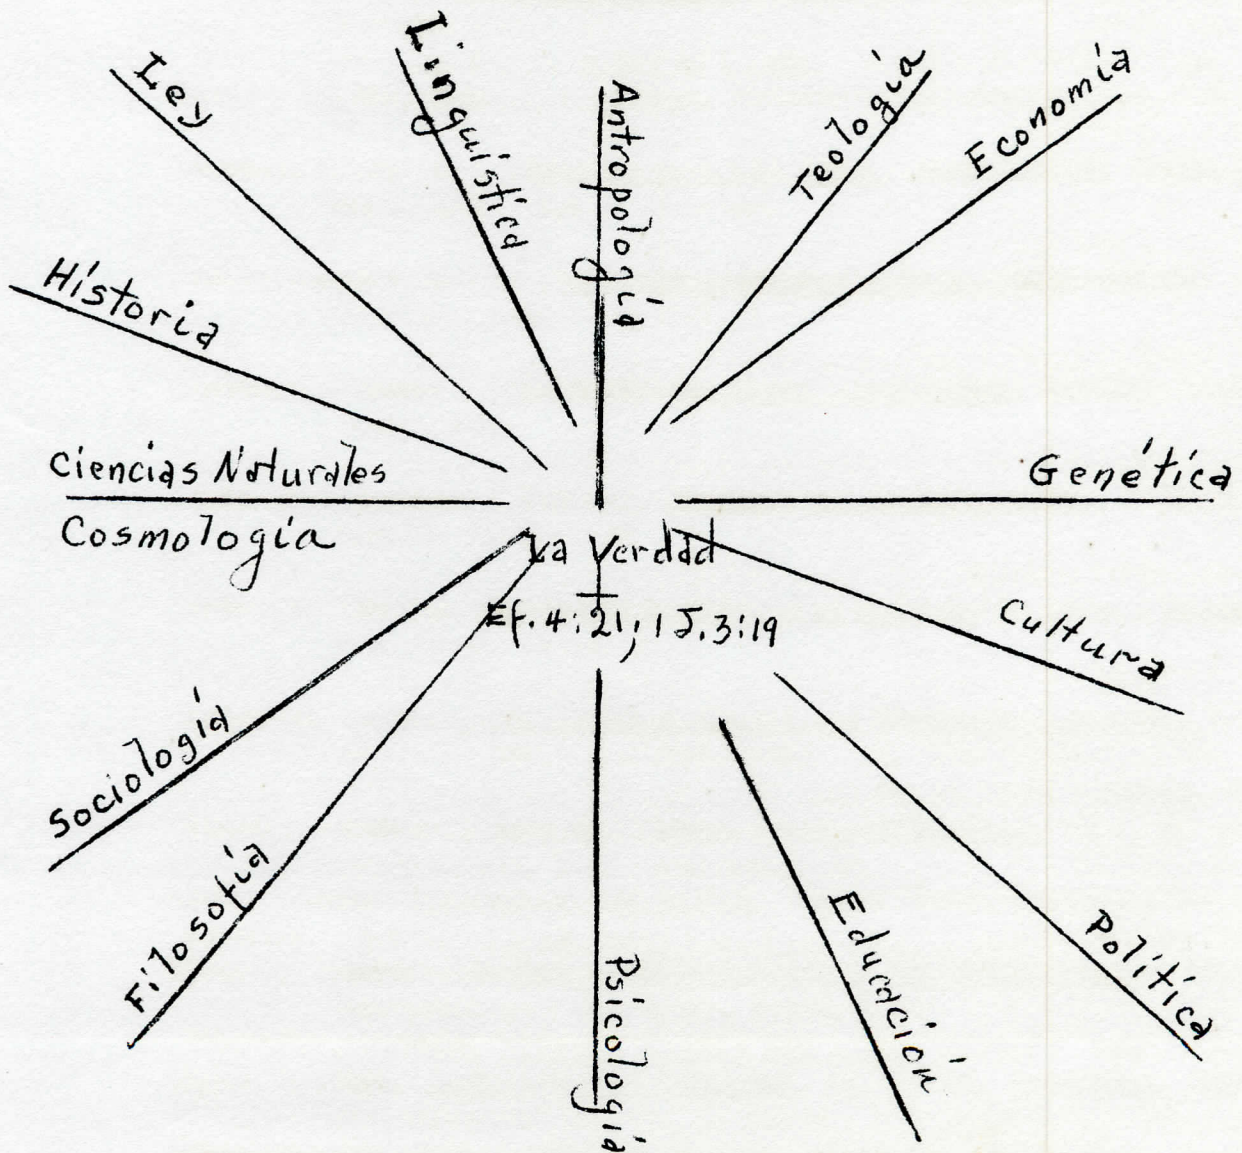 Ley
Linguística
Antropología
Teología
Economía
Historia
Ciencias Naturales
Cosmología
Genética
La Verdad
Ef. 4:21; 1 J. 3:19
Cultura
Sociología
Filosofía
Psicología
Educación
Política